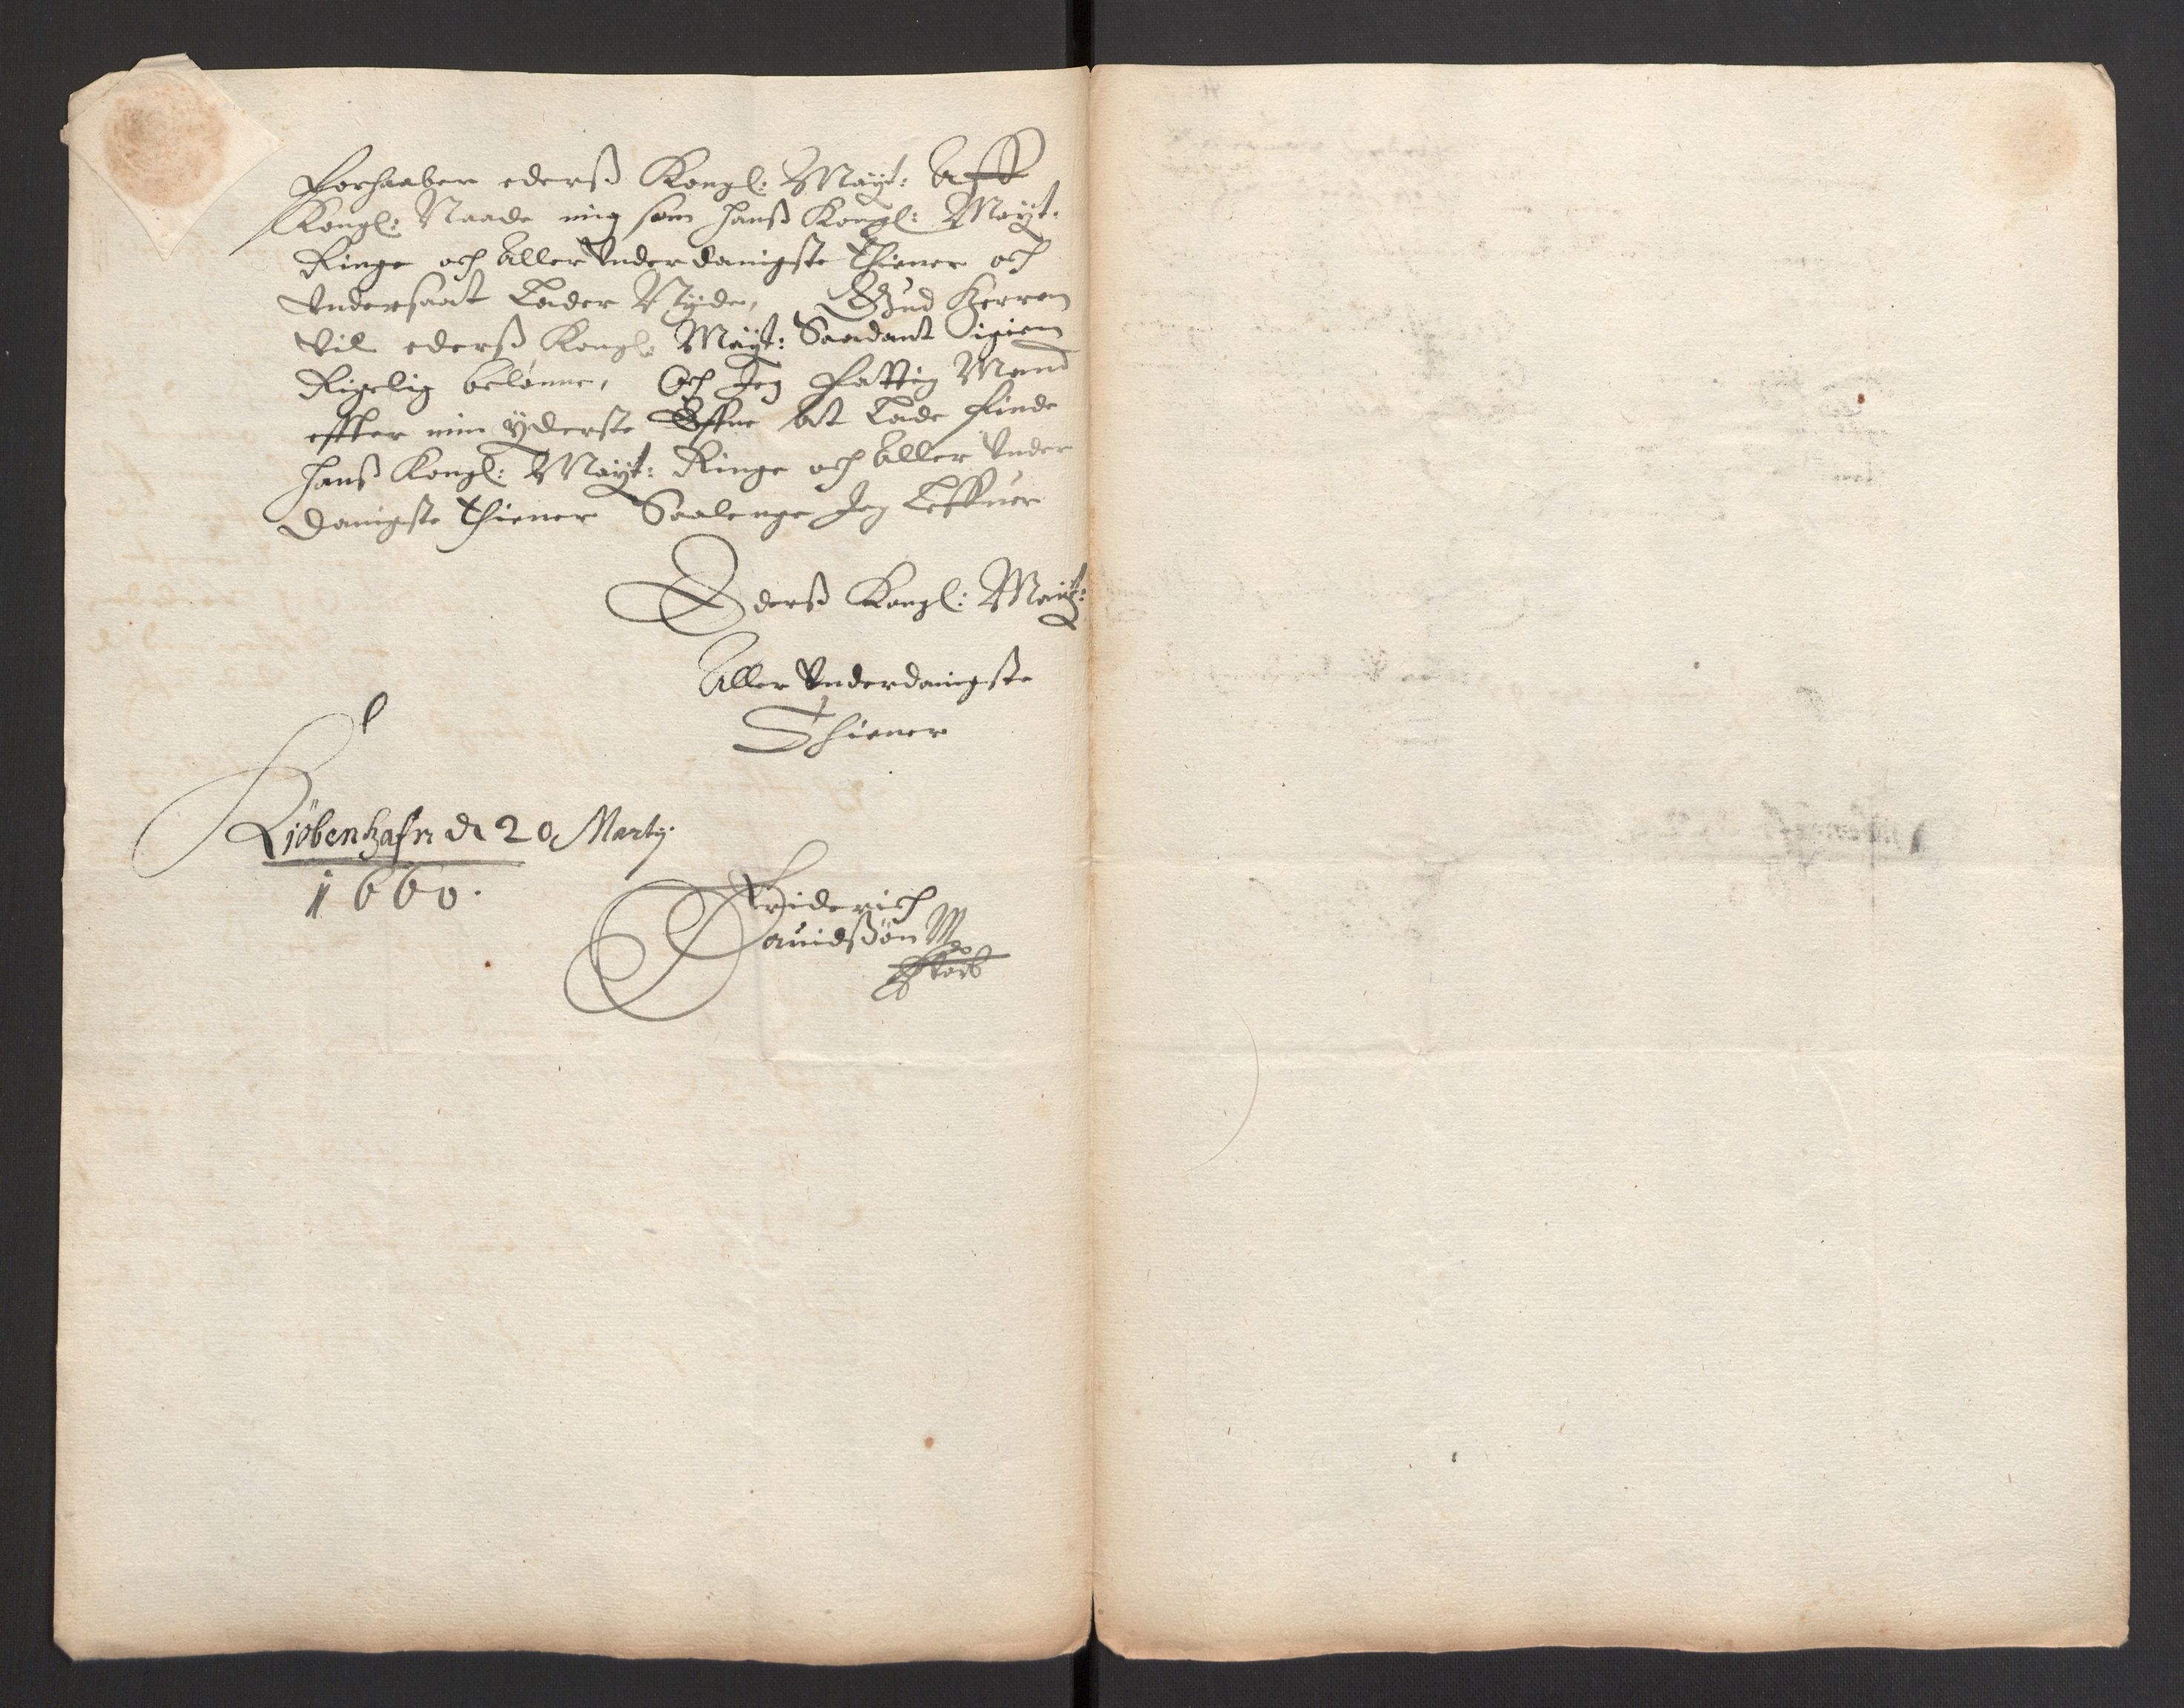 forhaaber ederß Kongl: Mayt: Aff
Kongl: Naade mig som hanß Kongl: Mayt:
Ringe och Aller Underdanigste Thiener och
Undersaat Lader Nyde, Gud Herren
Vil ederß Kongl: Mayt: Saadant igien
Rigelig belønne, Och Jeg fattig Mand
effter min yderste Effne At Lade finde
hanß Kongl: Mayt: Ringe och Aller Under
danigste Thiener Saalenge Jeg Leffuer
Ederß Kongl: Mayt:
Aller Underdanigste
Thiener
Kiøbenhafn d 20 Martij
1660.
Friderich
Dauidßøn